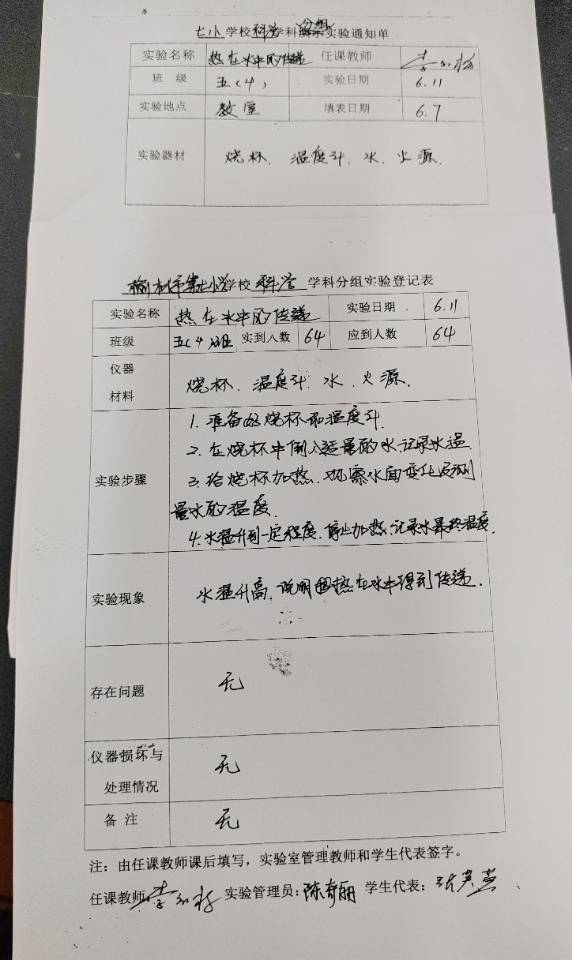 七小学校科学学科分组实验通知单
实验名称 热在水中的传递 任课教师
班 级 五(4) 实验日期 6.11
实验地点 教室 填表日期 6.7
实验器材 烧杯、温度计、水、火源、
榆树市第七小学学校 科学 学科分组实验登记表
实验名称 热在水中的传递 实验日期 6.11
班级 五(4)班 实到人数 64 应到人数 64
仪器
材料 烧杯、温度计、水、火源、
1. 准备好烧杯和温度计
2. 在烧杯中倒入适量的水记录水温
实验步骤 3. 给烧杯加热、观察水面变化及测
量水的温度、
4. 水温升到一定程度、停止加热、记录水最终温度、
实验现象 水温升高、说明热在水中得到传递、
存在问题 无
仪器损坏与
处理情况 无
备 注 无
注：由任课教师课后填写，实验室管理教师和学生代表签字。
任课教师： 实验管理员：陈奇丽 学生代表：